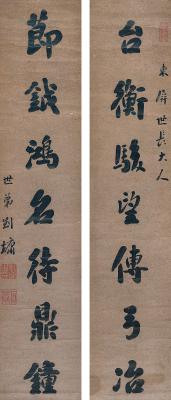 東屏世長大人
台衡駿望傳弓冶
節鉞鴻名待鼎鐘
世弟劉墉